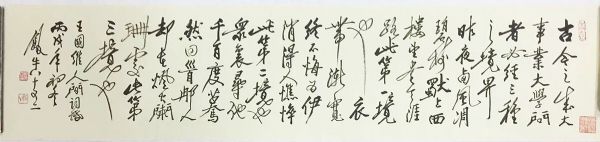 古今之成大
事業大學問
者必經三種
之境界
昨夜西風凋
碧樹獨上西
樓望盡天涯
路此第一境
也 衣
帶漸寬
終不悔為伊
消得人憔悴
此第二境也
眾裏尋他
千百度驀
然回首那人
却在燈火闌
珊處此第
三境也
王國維人間詞話
丙戌年初冬